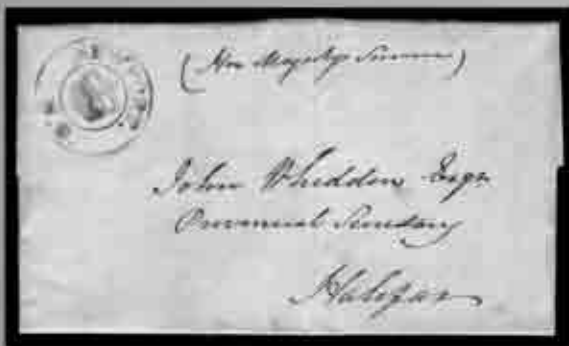 (Her Majestys Service)
John Whidden Esqr
Provincial Secretary
Halifax